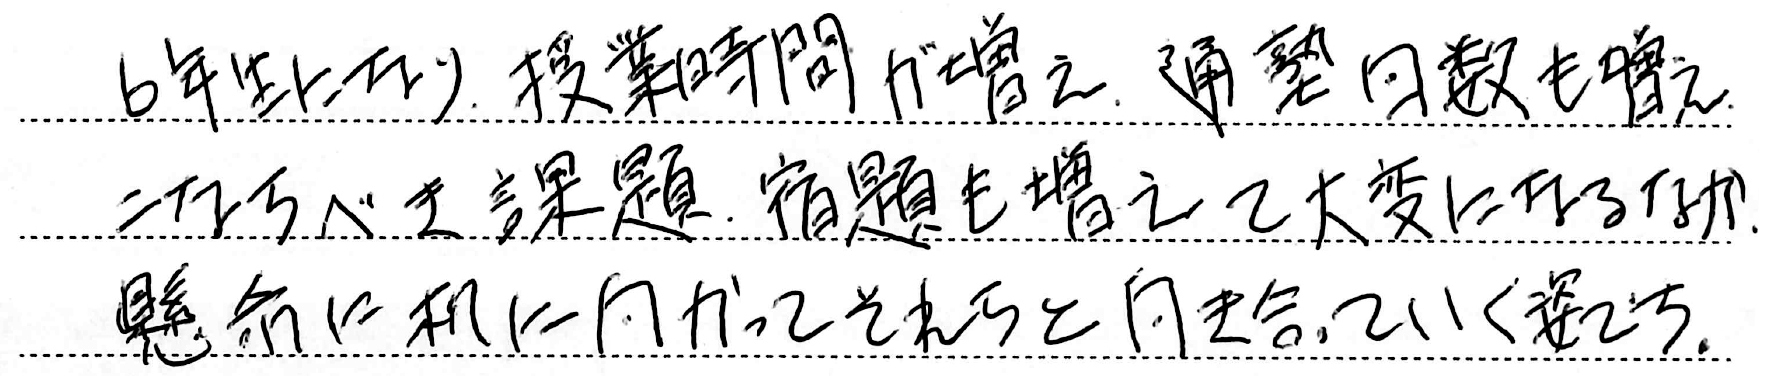 6年生になり、授業時間が増え、通塾回数も増え、
こなすべき課題、宿題も増えて大変になるなか、
懸命に机に向かってそれらと向き合っていく姿です。